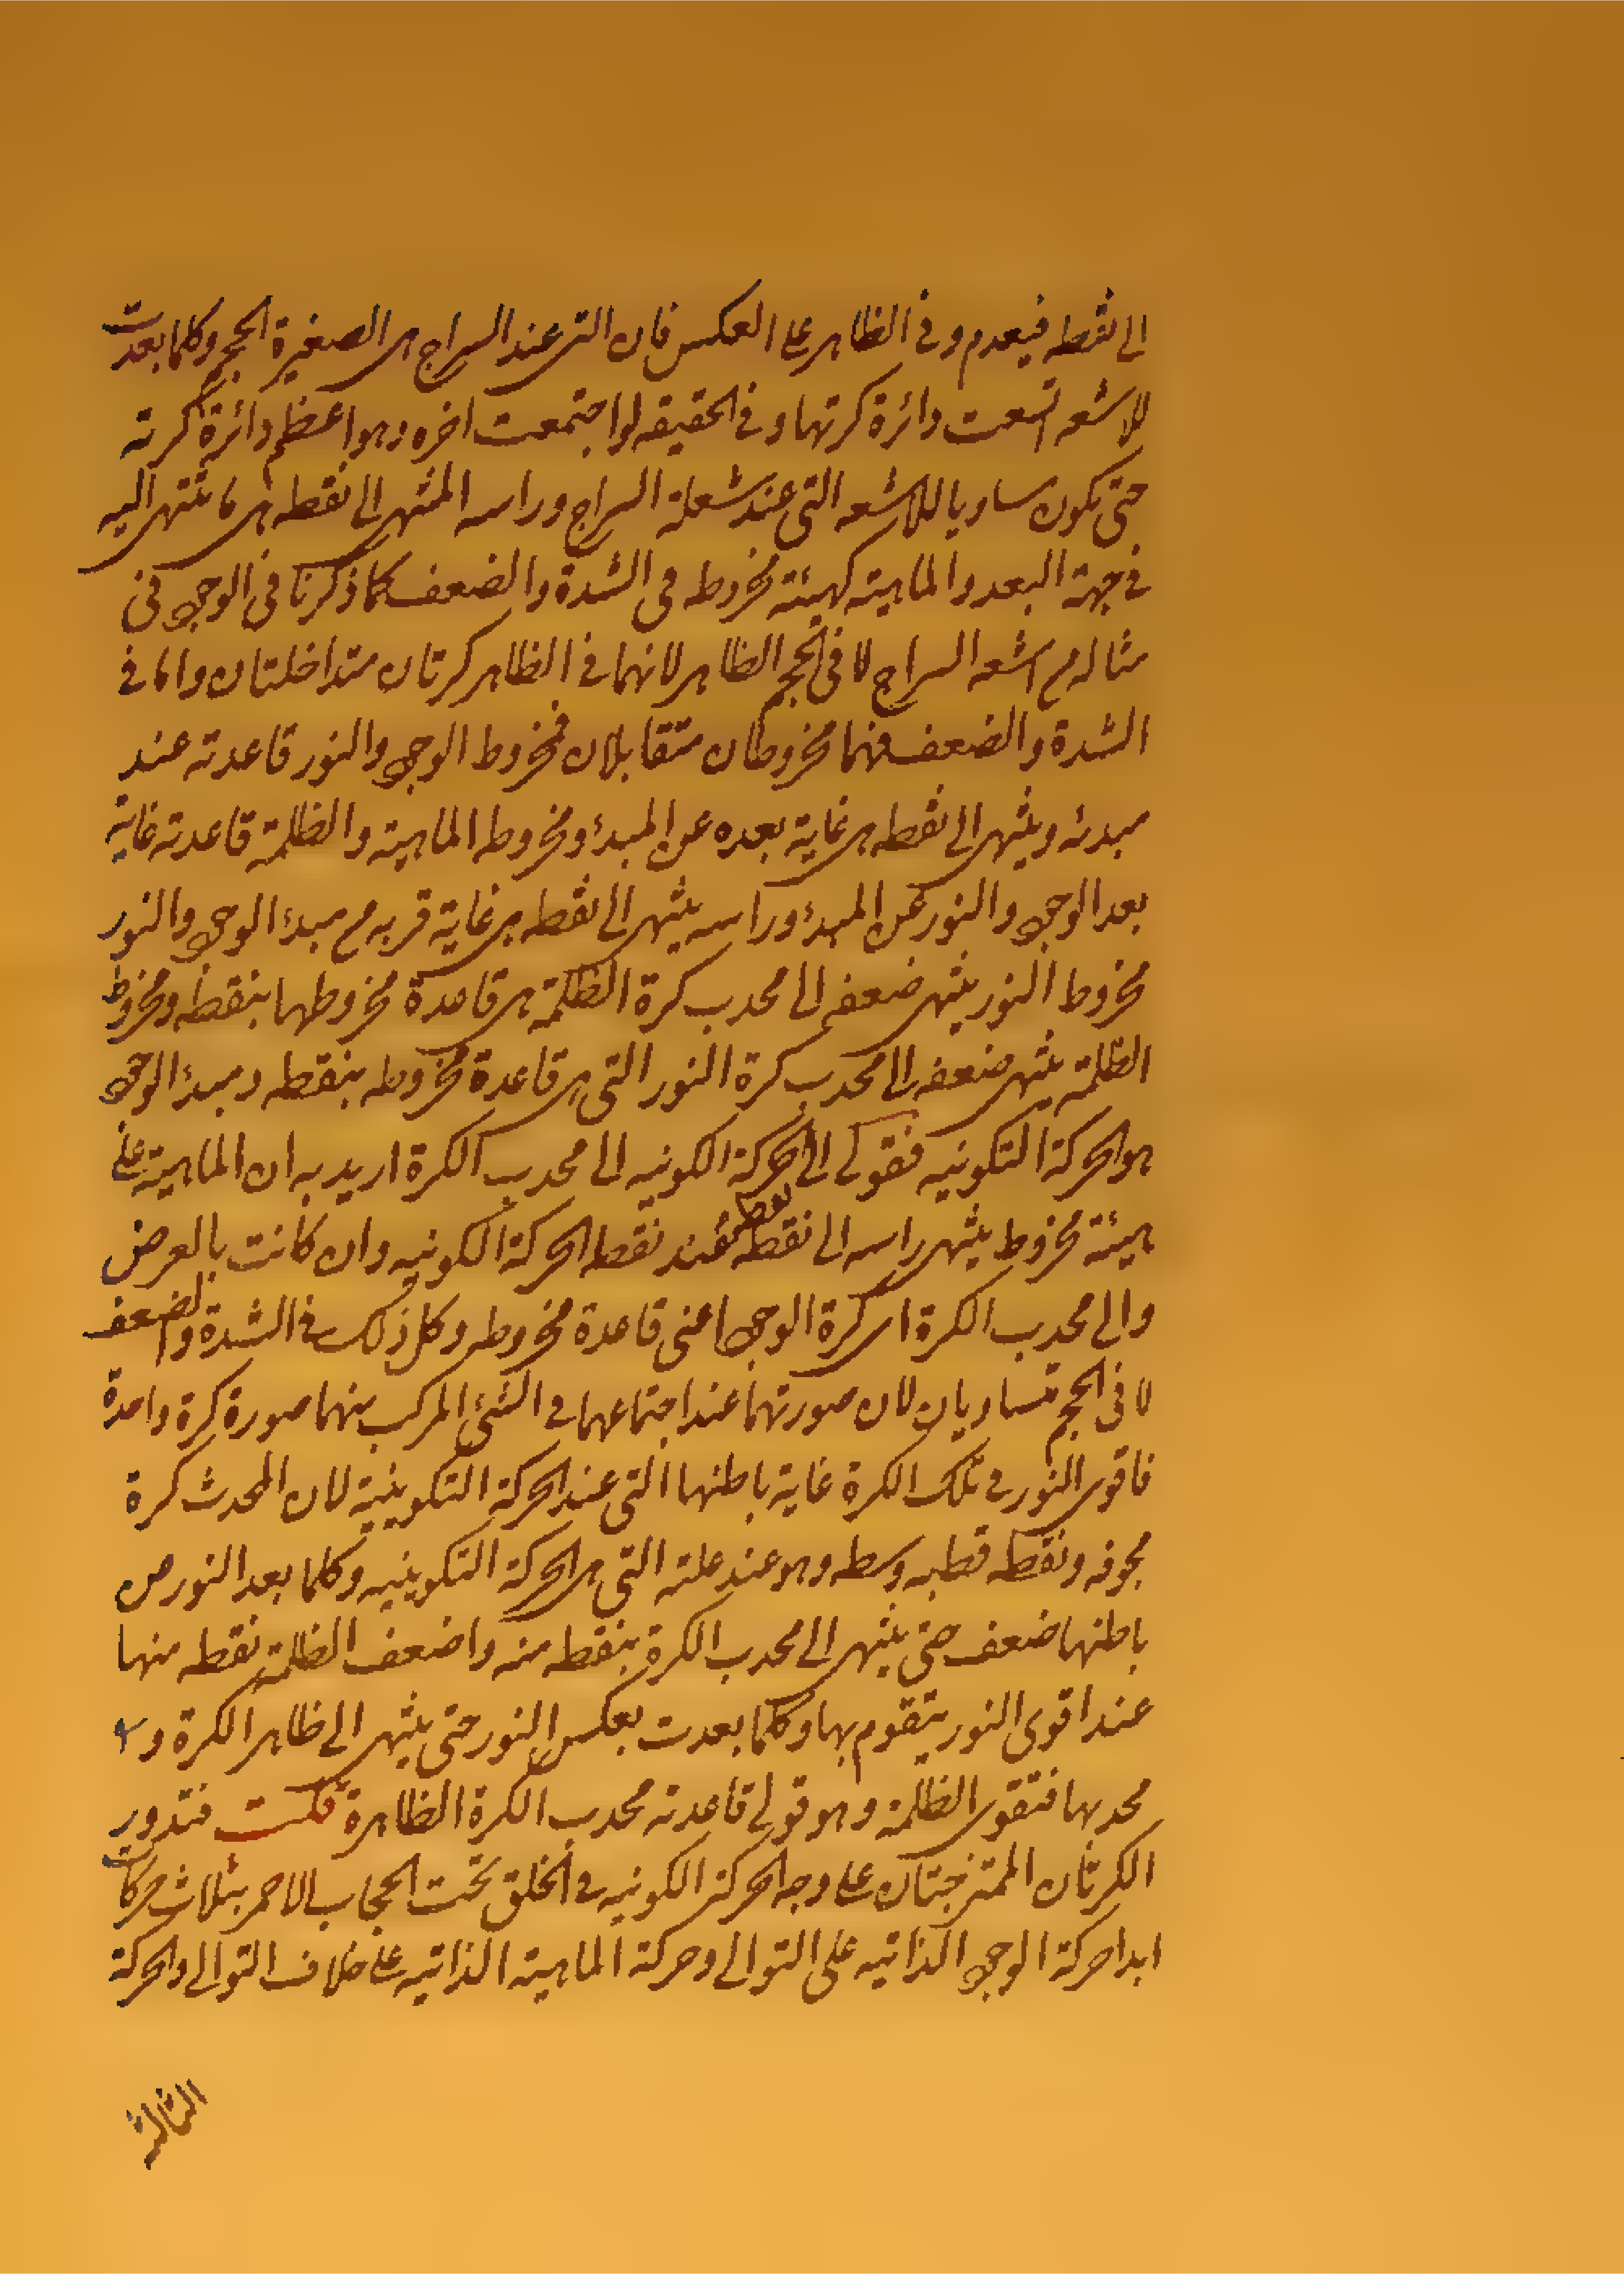 الى نقطه فيعدم و فى الظاهر على العكس فان التى عند السراج هى الصغيرة الحجم و كلما بعدت
الاشعه اتسعت دائرة كرتها و فى الحقيقه لو اجتمعت اخره و هو اعظم دائرة كرته
حتى تكون مساويا للاشعه التى عند شعلة السراج و راسه المنتهى الى نقطه هى ما ينتهى اليه
فى جهة البعد و الماهية كهيئة مخروط فى الشدة و الضعف كما ذكرنا فى الوجود فى
مثاله من اشعه السراج لا فى الحجم الظاهر لانهما فى الظاهر كرتان متداخلتان و اما فى
الشدة و الضعف فهما مخروطان متقابلان فمخروط الوجود و النور قاعدته عند
مبدئه و ينتهى الى نقطه هى غاية بعده عن المبدء و مخروط الماهية و الظلمة قاعدته غاية
بعد الوجود و النور عن المبدء و راسه ينتهى الى نقطه هى غاية قربه من مبدء الوجود و النور
مخروط النور ينتهى ضعفه الى محدب كرة الظلمة هى قاعدة مخروطها بنقطه و مخروط
الظلمة ينتهى ضعفه الى محدب كرة النور التى هى قاعدة مخروطه بنقطه و مبدء الوجود
هو الحركة التكونيه فقولى الى الحركة الكونيه الى محدب الكرة اريد به ان الماهية على
هيئة مخروط ينتهى راسه الى نقطه عند نقطه الحركة الكونيه و ان كانت بالعرض
و الى محدب الكرة اى كرة الوجود اعنى قاعدة مخروطه و كل ذلك فى الشدة و الضعف
لا فى الحجم متساويان لان صورتهما عند اجتماعهما فى الشئ المركب منهما صورة كرة واحدة
فاقوى النور فى تلك الكرة غاية باطنها التى عند الحركة التكوينية لان المحدث كرة
مجوفه و نقطه قطبه وسطه و هو عند علته التى هى الحركة التكوينيه و كلما بعد النور من
باطنها ضعف حتى ينتهى الى محدب الكرة بنقطه منه و اضعف الظلمة نقطه منها
عند اقوى النور يتقوم بها و كلما بعدت بعكس النور حتى ينتهى الى ظاهر الكرة و
محدبها فتقوى الظلمة و هو قولى قاعدته محدب الكرة الظاهرة قلت فتدور
الكرتان الممتزجتان على وجه الحركة الكونيه فى الخلق تحت الحجاب الاحمر بثلاث حركات
ابدا حركة الوجود الذاتيه على التوالى و حركة الماهية الذاتيه على خلاف التوالى و الحركة
الثالثة